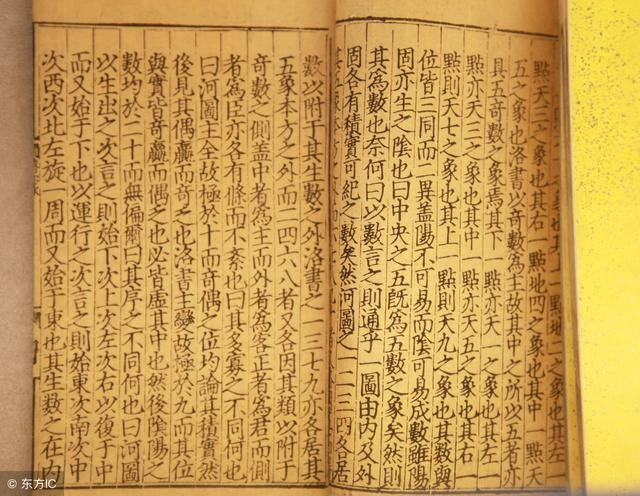 之象也其上一點地二之象也其左
點天三之象也其右一點地四之象也其中一點天
五之象也洛書以奇數為主故其中之所以五者亦
具五奇數之象焉其下一點亦天一之象也其左一
點亦天三之象也其中一點亦天五之象也其右一
點則天七之象也其上一點則天九之象也其數與
位皆三同而二異蓋陽不可易而陰可易成數雖陽
固亦生之陰也曰中央之五旣為五數之象矣然則
其為數也奈何曰以數言之則通乎一圖由內及外
固各有積實可紀之數矣然河圖之一二三四各居
其五象本方之外
數以附于其生數之外洛書之一三七九亦各居其
五象本方之外而二四六八者又各因其類以附于
奇數之側蓋中者為主而外者為客正者為君而側
者為臣亦各有條而不紊也曰其多寡之不同何也
曰河圖主全故極於十而奇偶之位均論其積實然
後見其偶贏而奇乏也洛書主變故極於九而其位
與實皆奇贏而偶乏也必皆虛其中也然後陰陽之
數均於二十而無偏爾曰其序之不同何也曰河圖
以生出之次言之則始下次上次左次右以復于中
而又始于下也以運行之次言之則始東次南次中
次西次北左旋一周而又始于東也其生數之在內
© 东方IC